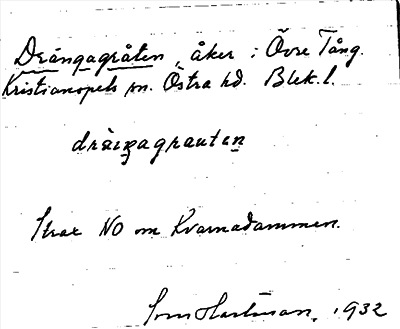 Drängagråten, åker i Övre Tång.
Kristianopels sn. Östra hd. Blek.l.
Strax NO om Kvarnadammen.
Hartman. 1932